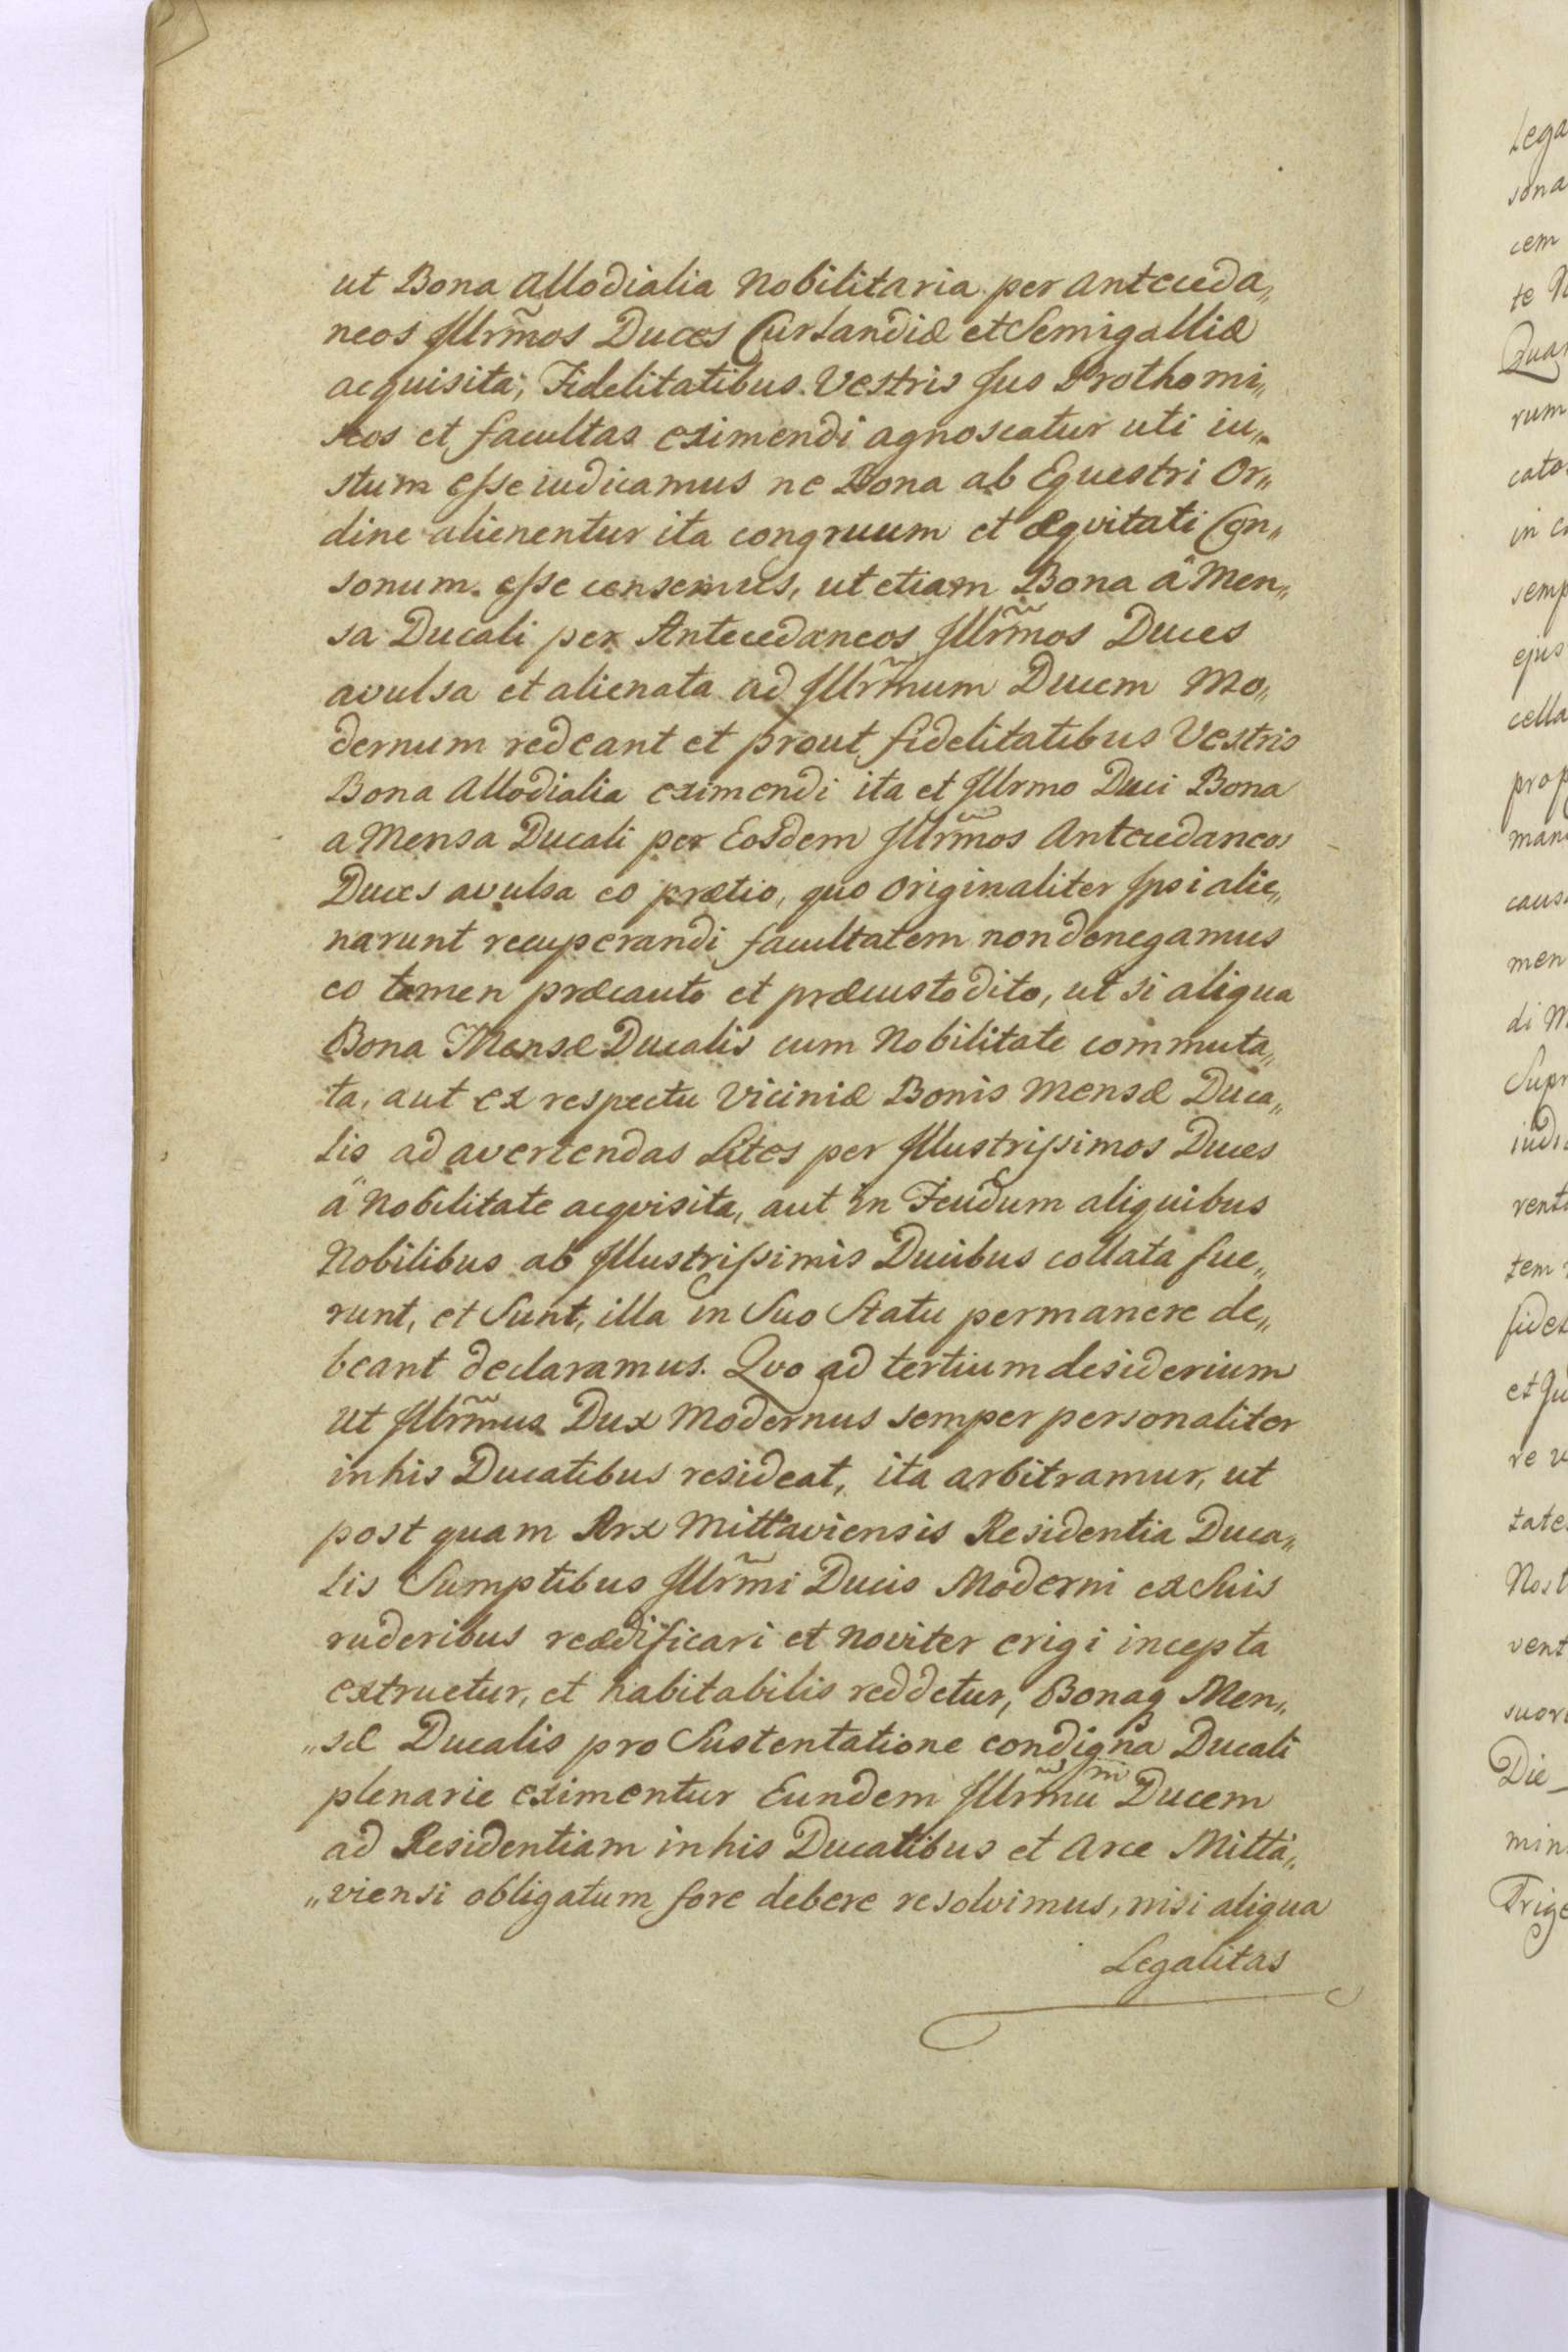 ut Bona Allodialia Nobilitaria per Anteceda„
neos Illrm̃os Duces Curlandiæ et Semigalliæ
acquisita, Fidelitatibus Vestris Jus Prothomi„
seos et facultas eximendi agnoscatur uti iu„
stum esse iudicamus ne Bona ab Equestri Or„
dine alienentur ita congruum et æqvitati Con„
sonum esse censemus, ut etiam Bona â Men„
sa Ducali per Antecedaneos Illrm̃os Duces
avulsa et alienata ad Illrm̃um Ducem Mo„
dernum redeant et prout fidelitatibus Vestris
Bona Allodialia eximendi ita et Illrmo Duci Bona
a Mensa Ducali per Eosdem Illrm̃os Antecedaneos
Duces avulsa eo prætio, quo Originaliter Ipsi alie„
narunt recuperandi facultatem non denegamus
eo tamen præcauto et præcustodito, ut si aliqua
Bona Mensæ Ducalis cum Nobilitate commuta„
ta, aut ex respectu Viciniæ Bonis Mensæ Duca„
lis ad avertendas Lites per Illustrissimos Duces
a Nobilitate acqvisita, aut in Feudum aliquibus
Nobilibus ab Illustrissimis Ducibus collata fue„
runt, et Sunt, illa in Suo Statu permanere de„
beant declaramus. Qvo ad tertium desiderium
ut Illrm̃us Dux Modernus semper personaliter
in his Ducatibus resideat, ita arbitramur, ut
post quam Arx Mittaviensis Residentia Duca„
lis Sumptibus Illrm̃i Ducis Moderni ex Suis
ruderibus reædificari et noviter erigi incepta
extruetur, et habitabilis reddetur, Bonaq Men„
„sæ Ducalis pro Sustentatione condigna Ducali
plenarie eximentur Eundem Illrm̃u͞m Ducem
ad Residentiam in his Ducatibus et Arce Mitta„
„viensi obligatum fore debere resolvimus, nisi aliqua
Legalitas